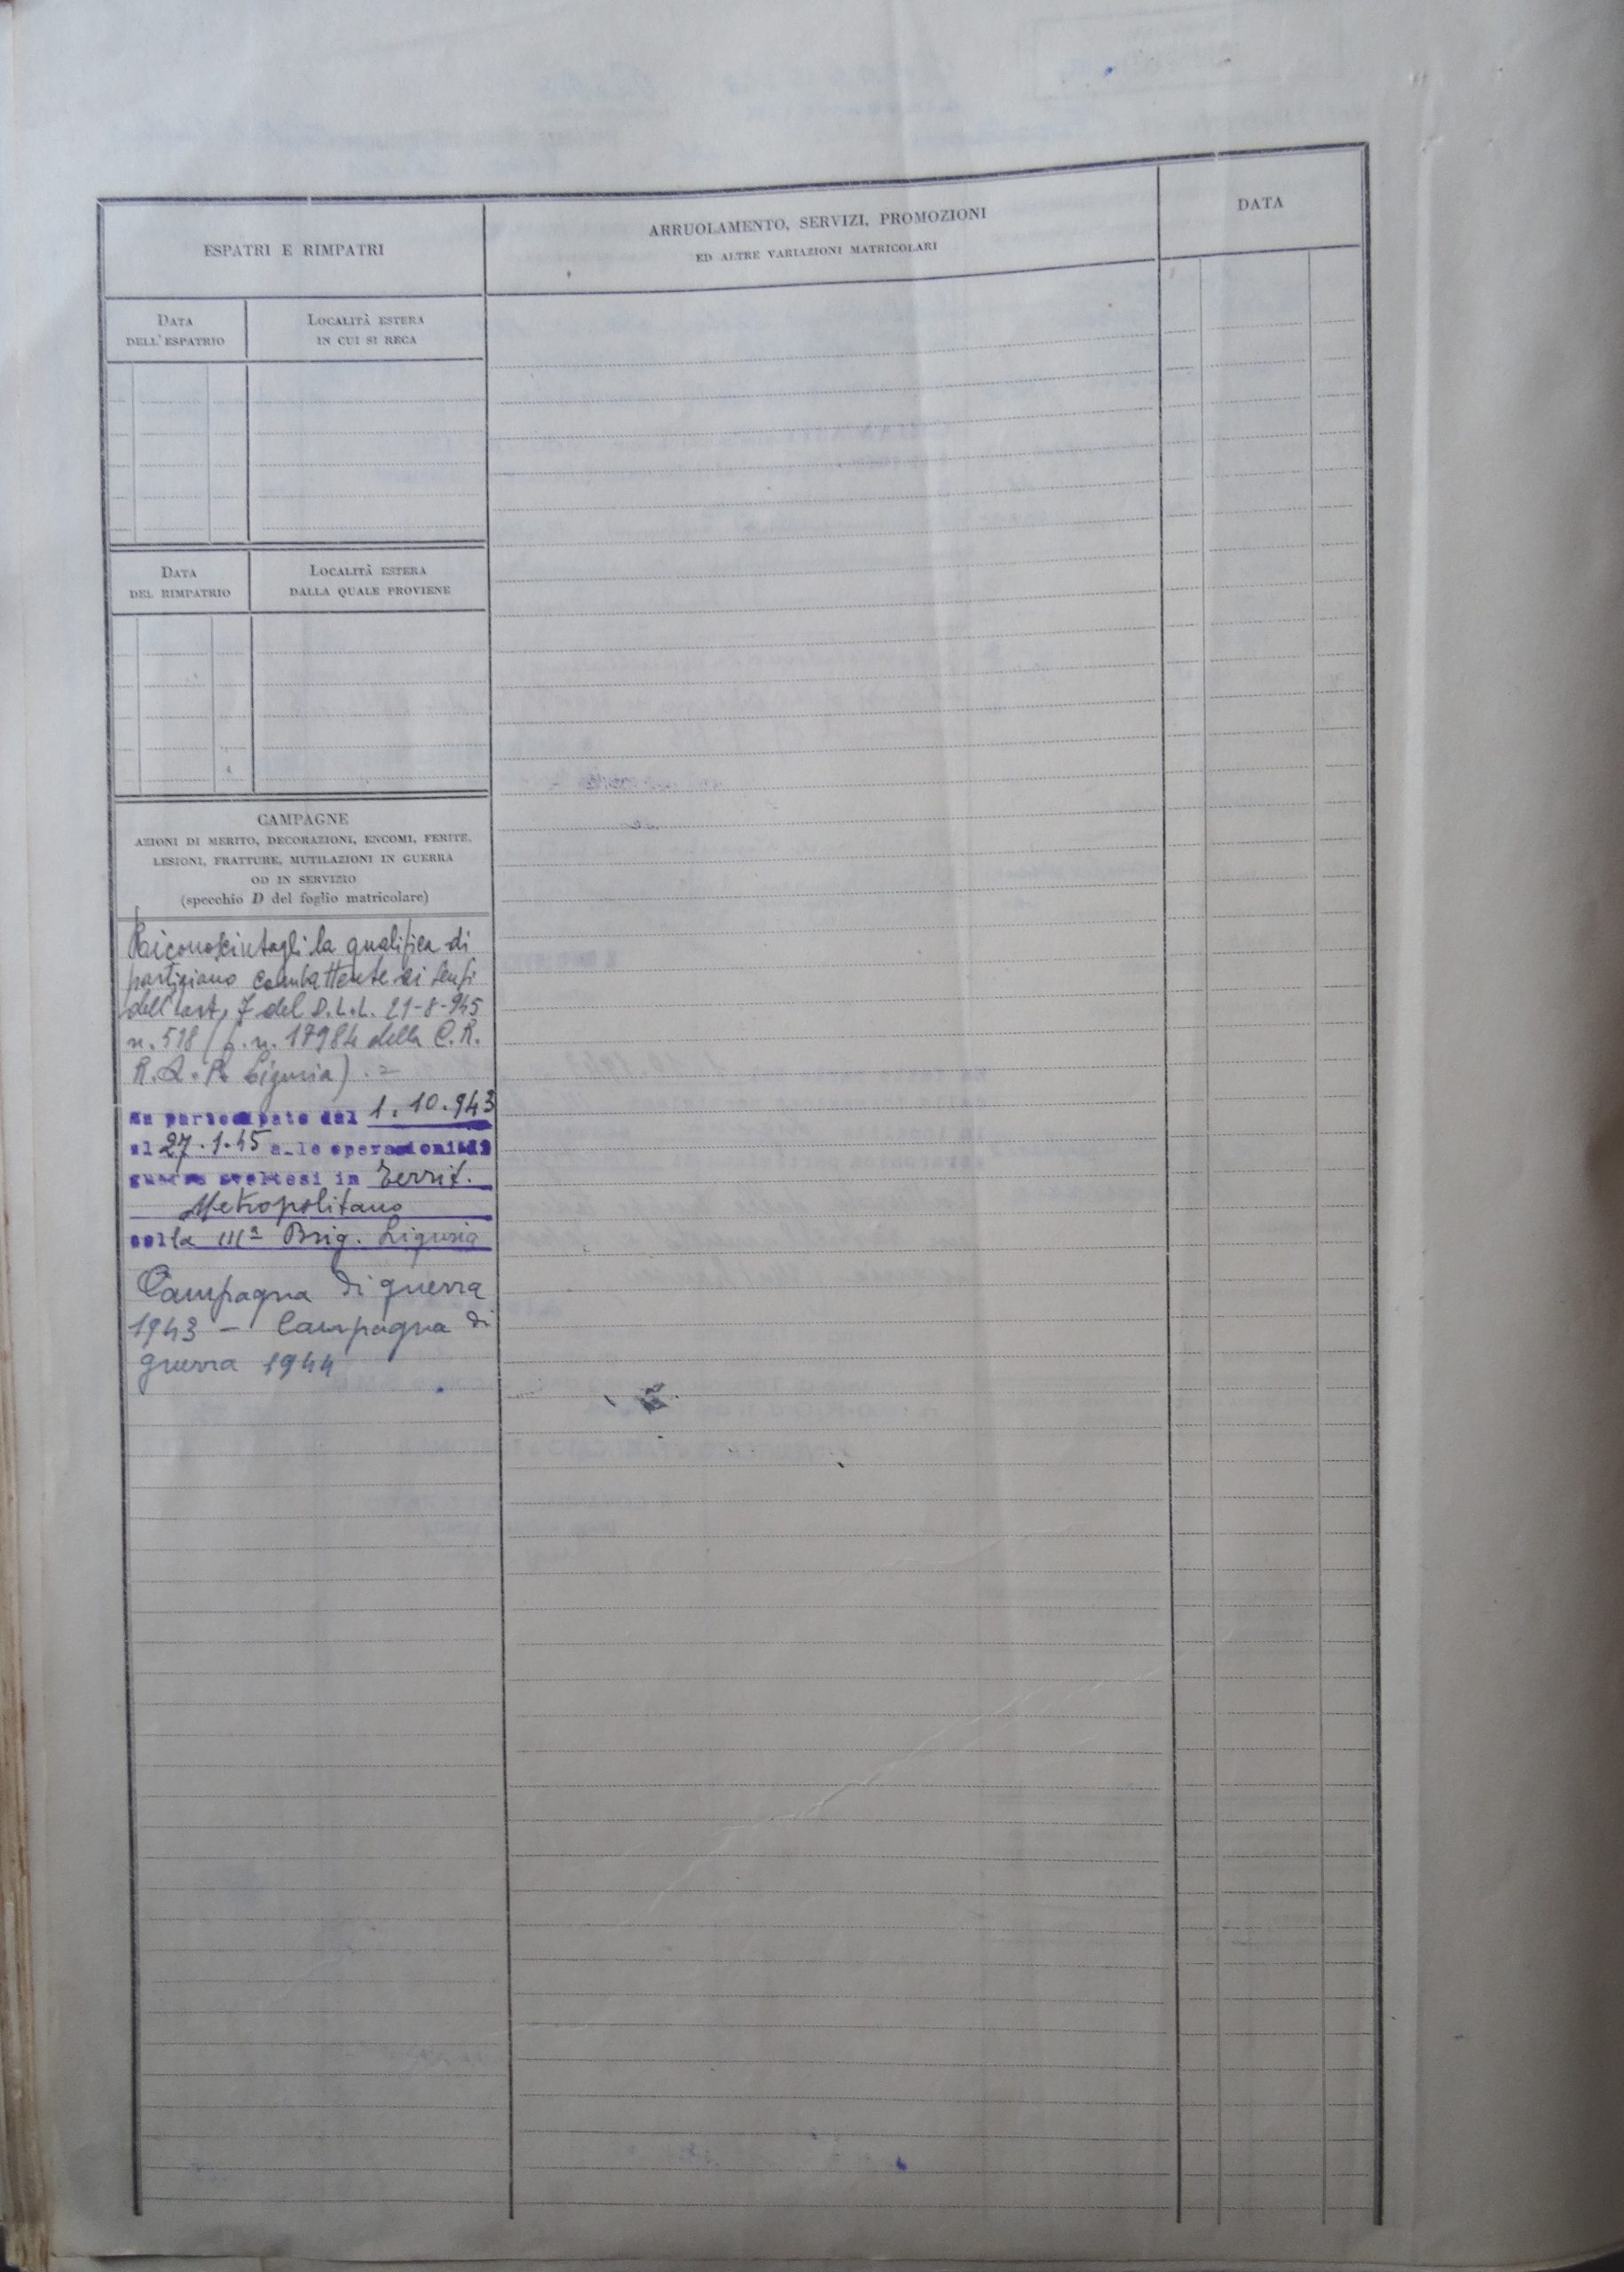 ESPATRI E RIMPATRI
ARRUOLAMENTO, SERVIZI, PROMOZIONI
ED ALTRE VARIAZIONI MATRICOLARI
DATA
DATA
DELL'ESPATRIO
LOCALITÀ ESTERA
IN CUI SI RECA
DATA
DEL RIMPATRIO
LOCALITÀ ESTERA
DALLA QUALE PROVIENE
CAMPAGNE
AZIONI DI MERITO, DECORAZIONI, ENCOMI, FERITE,
LESIONI, FRATTURE, MUTILAZIONI IN GUERRA
OD IN SERVIZIO
(specchio D del foglio matricolare)
Riconosciutagli la qualifica di
partigiano combattente ai sensi
dell'art. 7 del D.L.L. 21-8-945
n. 518 (f. n. 17984 della C.R.
R.Q.P. Liguria) . =
Ha partecipato dal 1.10.943
al 27.1.45 alle operazioni di
guerra svoltesi in Territ.
Metropolitano
colla IIIª Brig. Liguria
Campagna di guerra
1943 - Campagna di
guerra 1944